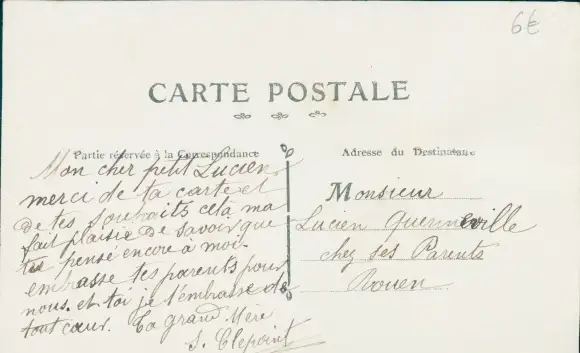 6€
CARTE POSTALE
Partie réservée à la Correspondance
Adresse du Destinataire
Mon cher petit Lucien
merci de ta carte et
de tes souhaits cela ma
fait plaisir de savoir que
tu pensé encore à moi.
embrasse tes parents pour
nous. et toi je t'embrasse de
tout cœur. Ta grand Mère
S. Clepoint
Monsieur
Lucien Quenneville
chez ses Parents
Rouen